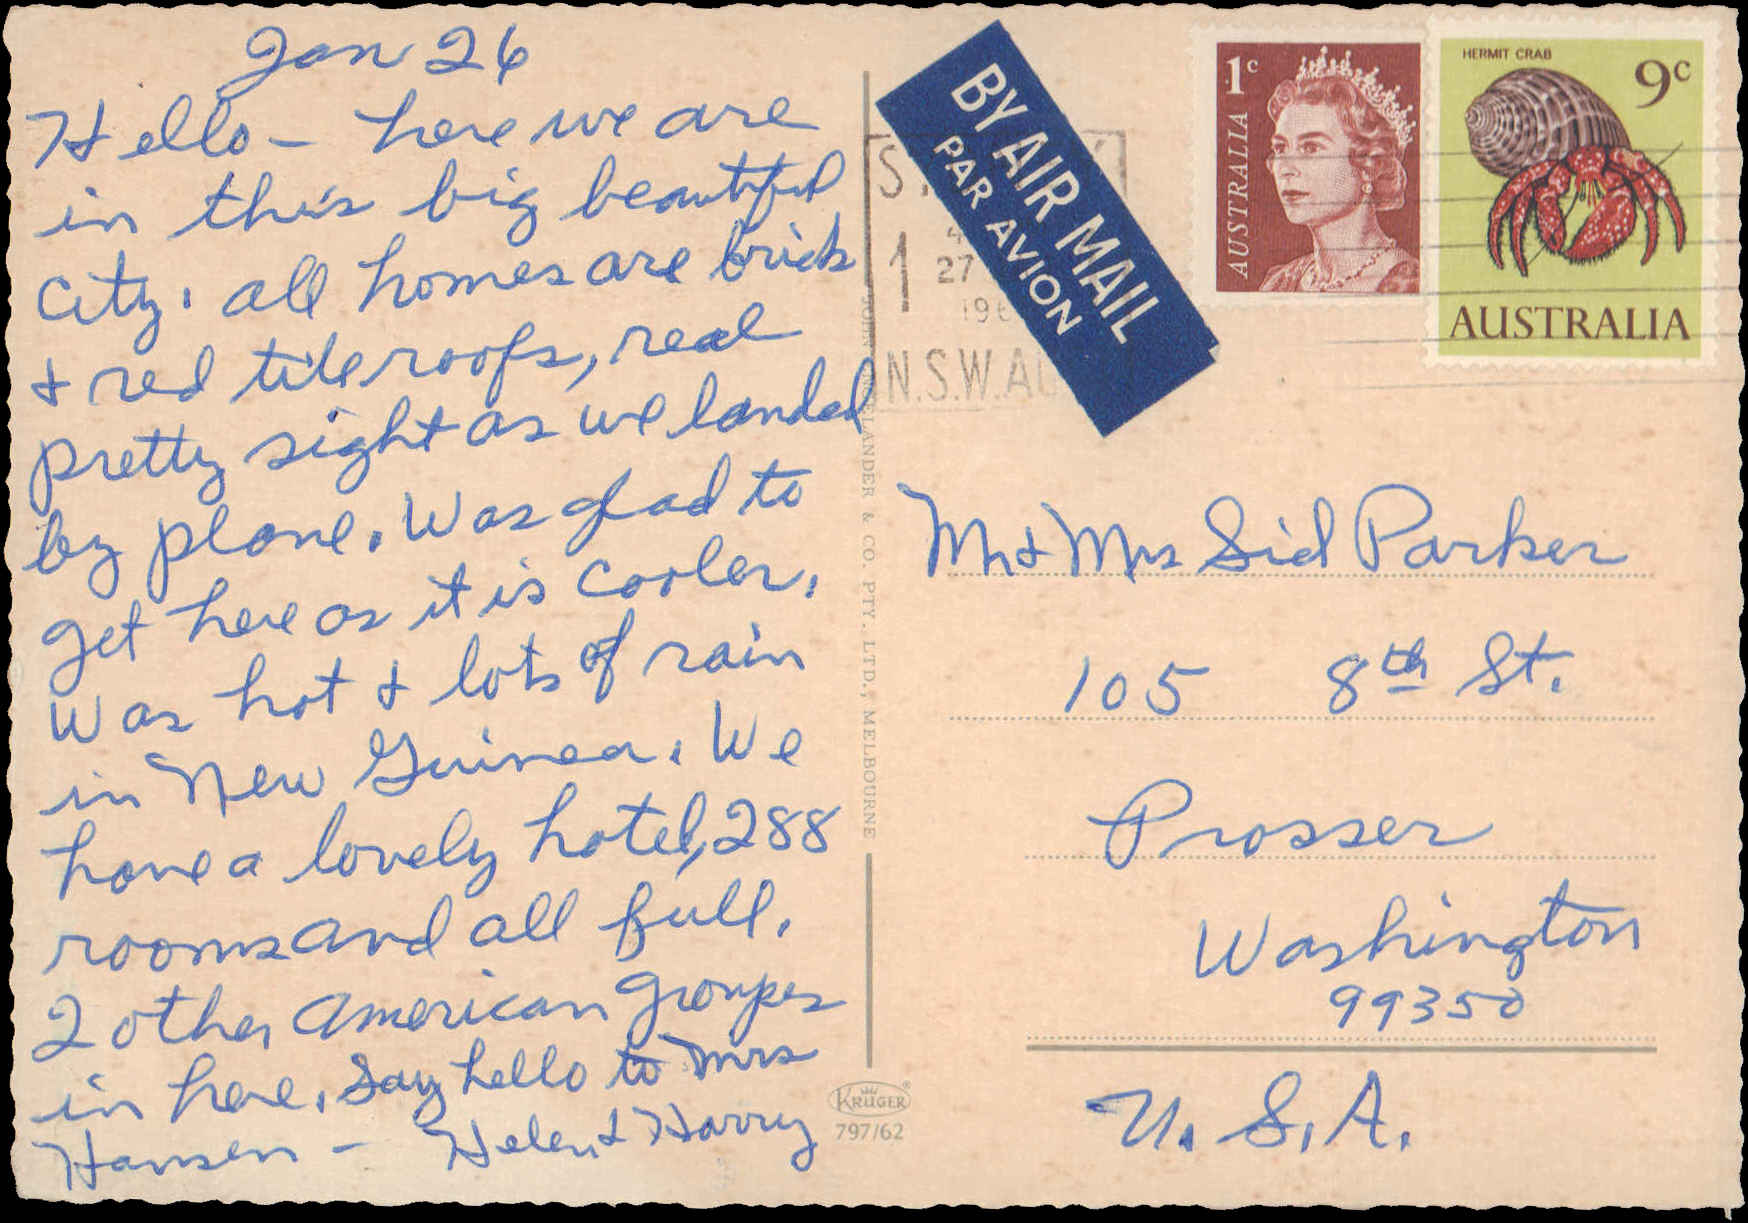 Jan 26
Hello - here we are
in this big beautiful
city. all homes are brick
& red tile roofs, real
pretty sight as we landed
by plane. Was glad to
get here as it is cooler.
Was hot & lots of rain
in New Guinea. We
have a lovely hotel, 288
rooms and all full.
2 other American groupes
in here. Say hello to Mrs
Hansen - Helen & Harry
BY AIR MAIL
PAR AVION
1
27
196
N.S.W. AU
1c
AUSTRALIA
HERMIT CRAB
9c
AUSTRALIA
LANDER & CO. PTY. LTD., MELBOURNE
KRÜGER®
797/62
Mr & Mrs Sid Parker
105 8th St.
Prosser
Washington
99350
U.S.A.